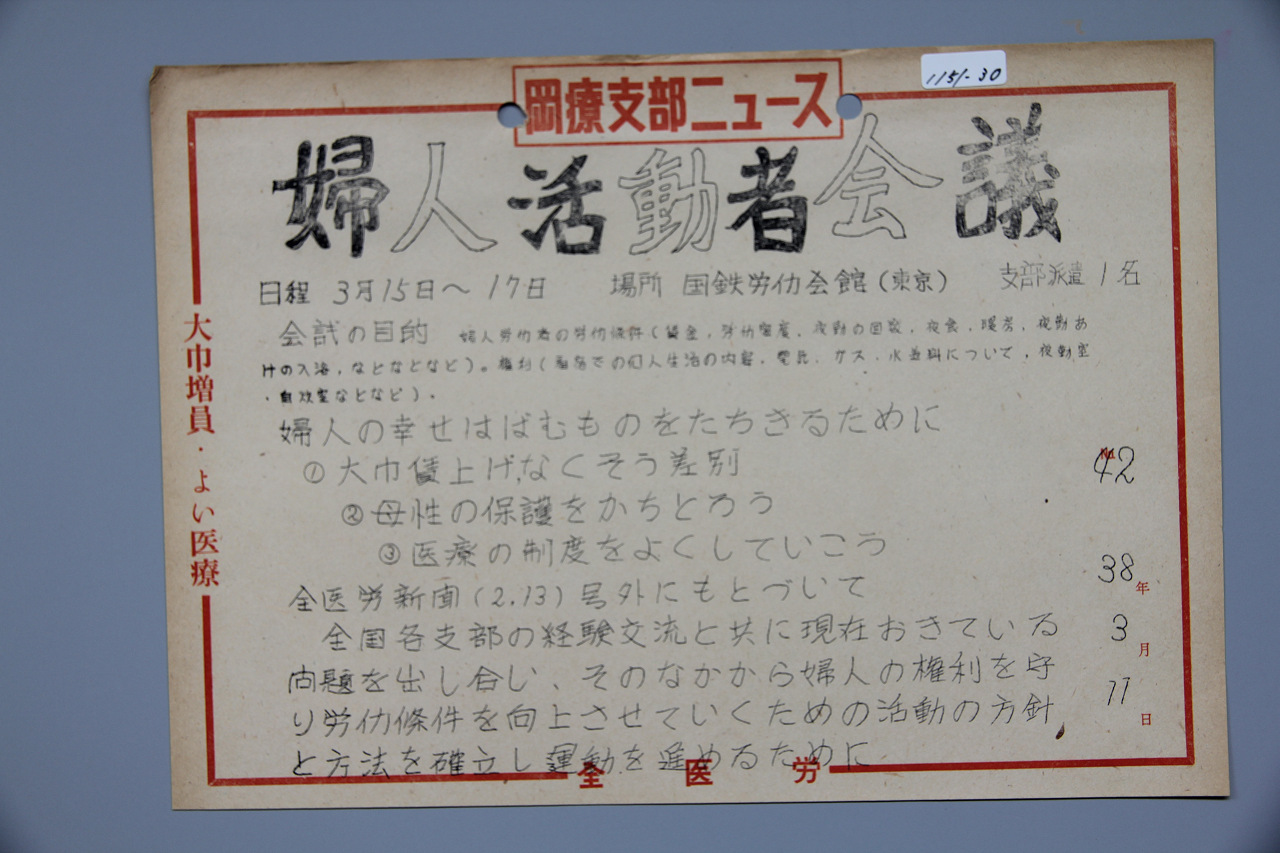 1151-30
岡療支部ニュース
婦人活動者会議
日程 3月15日〜17日 場所 国鉄労仂会館(東京) 支部派遣1名
会試の目的 婦人労仂者の労仂條件(賃金、労仂密度、夜勤の回数、夜食、暖房、夜勤あ
けの入浴、などなどなど)。権利(寄宿舎での個人生活の内容、電氏、ガス、水道料について、夜勤室
・自炊室などなど)。
婦人の幸せはばむものをたちきるために
①大巾賃上げ、なくそう差別
②母性の保護をかちとろう
③医療の制度をよくしていこう
全医労新聞(2.13)号外にもとづいて
全国各支部の経験交流と共に現在おきている
問題を出し合い、そのなかから婦人の権利を守
り労仂條件を向上させていくための活動の方針
と方法を確立し運動を進めるために
大巾増員・よい医療
No.42
38年
3月
11日
全医労